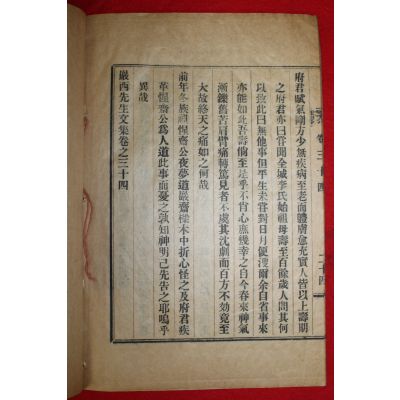 卷三十四
二十四
府君賦氣剛方少無疾病至老而體膚愈充實人皆以上壽期
之府君亦曰嘗聞全城李氏始祖母壽至百餘歲人問其何
以致此曰無他事但平生未嘗對日月便溲爾余自省事來
亦能如此吾壽倘至是乎不肖心庶幾幸之自今春來神氣
漸鑠舊苦肩臂痛轉篤見者不虞其沈劇而百方不効竟至
大故終天之痛如之何哉
前年冬族祖惺齋公夜夢道巖齋樑木中折心怪之及府君疾
革惺齋公爲人道此事而憂之孰知神明已先告之耶嗚乎
異哉
巖西先生文集卷之三十四